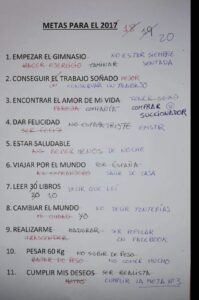 METAS PARA EL 2017 38 39 20
1. EMPEZAR EL GIMNASIO NO ESTAR SIEMPRE
HACER EJERCICIO CAMINAR SENTADA
2. CONSEGUIR EL TRABAJO SOÑADO MEJOR
CONSERVAR UN TRABAJO
3. ENCONTRAR EL AMOR DE MI VIDA TENER SEXO
PAREJA COMPAÑIA COMPRAR
SUCCIONADOR
4. DAR FELICIDAD NO ESTAR TRISTE EXISTIR
SER FELIZ
5. ESTAR SALUDABLE
NO BEBER MENOS DE NOCHE
6. VIAJAR POR EL MUNDO POR ESPAÑA
SALIR DE CASA
7. LEER 30 LIBROS DECIR QUE LEI
20 10
8. CAMBIAR EL MUNDO NO DECIR TONTERÍAS
MI CIUDAD YO
9. REALIZARME MADURAR SER POPULAR
EN FACEBOOK
10. PESAR 60 Kg NO SUBIR DE PESO
BAJAR DE PESO NO COMER MUCHO
11. CUMPLIR MIS DESEOS SER REALISTA
METAS CUMPLIR LA META Nº 3